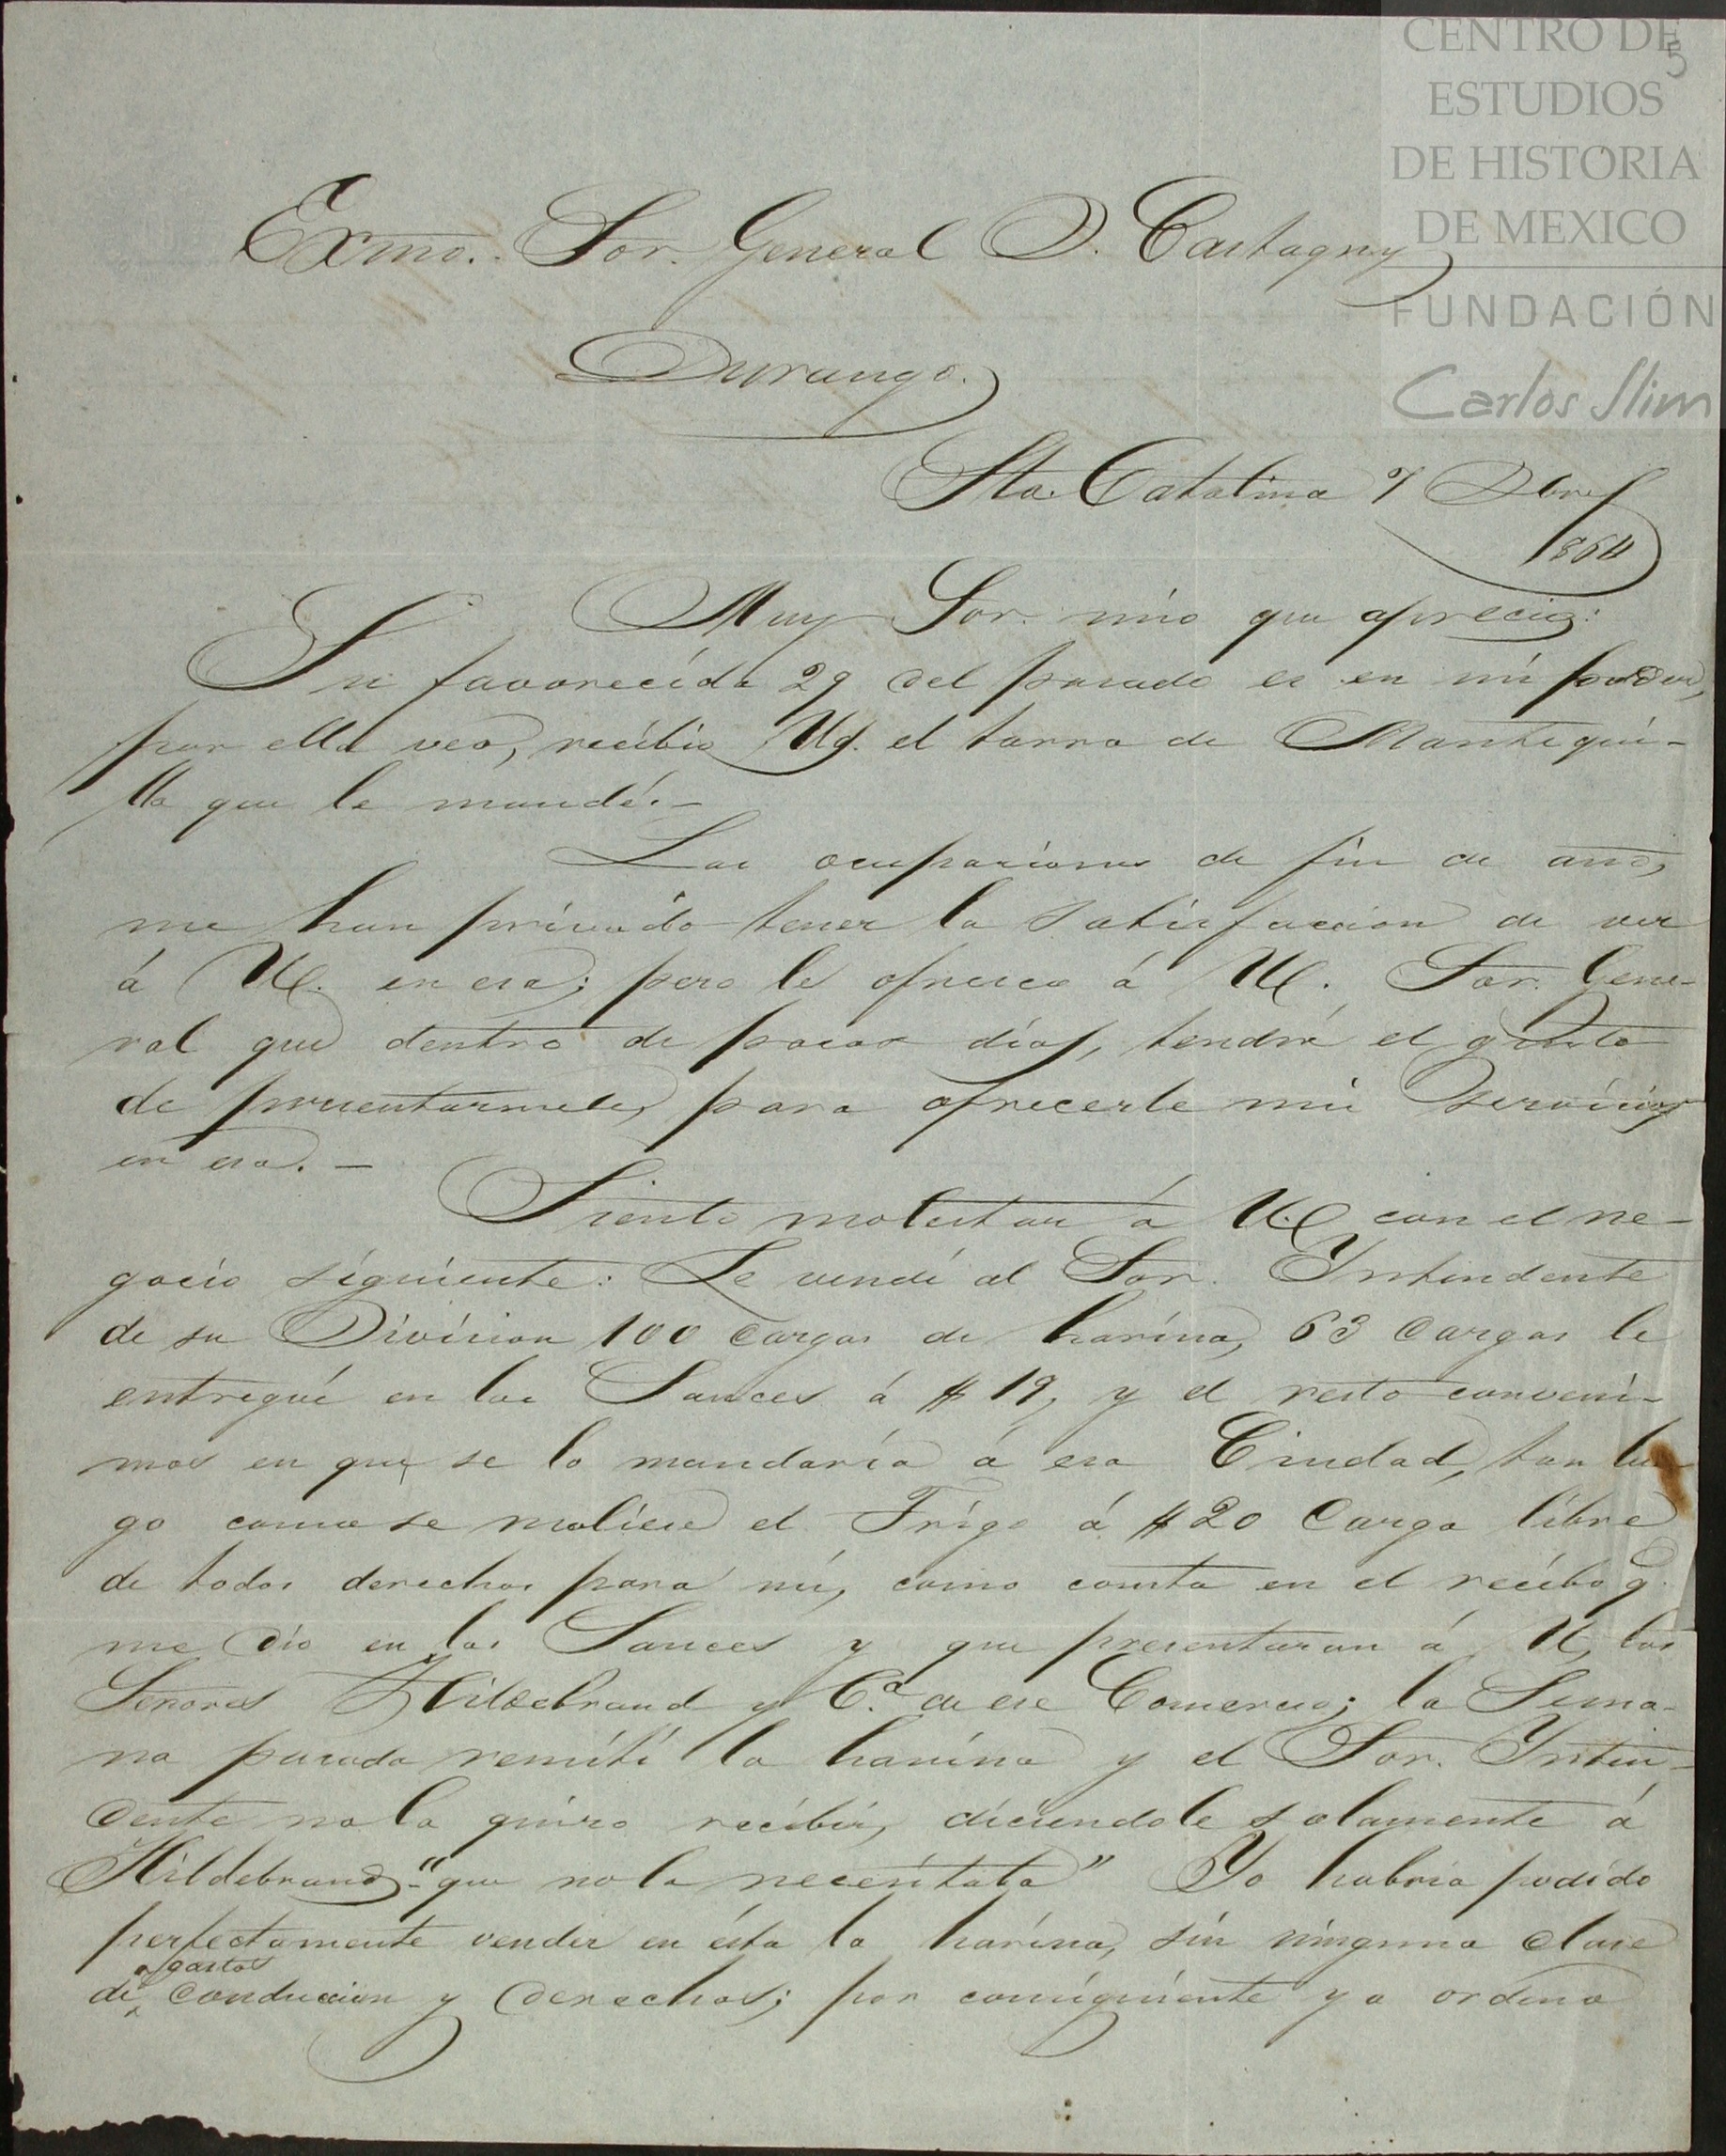 CENTRO DE
ESTUDIOS
DE HISTORIA
DE MEXICO
FUNDACIÓN
Carlos Slim
5
Exmo. Sor. General D. Castagny
Durango.
Sta. Catalina 7 Dbre
1864
Muy Sor. mío que aprecio:
Su favorecída 29 del pasado es en mí poder,
por ella veo, recíbio Ud. el tarro de Mantequi-
lla que le mandé.—
Las ocupaciones de fin de año,
me han prívado tener la satisfaccion de ver
á Ud. en esa; pero le ofresco á Ud. Sor. Gene-
ral que dentro de pocos días, tendré el gusto
de presentarmele, para ofrecerle mis servícios
en esa.—
Siento molestar á Ud con el ne-
gocio síguiente: Le vendí al Sor. Yntendente
de su Divísion 100 cargas de harína, 63 cargas le
entregué en los Sauces á $19, y el resto conveni-
mos en que se la mandaría á esa Ciudad, tan lue-
go como se moliese el Trígo á $20 Carga líbre
de todos derechos para mí, como consta en el recíbo q.
me dio en los Sauces y que presentaran á U, los
Señores Hildebrand y Cª. de ese Comercio; la Sema-
na pasada remítí la harína y el Sor. Ynten-
dente no la quíso recíbir, dícíendole solamente á
Hildebrand "que no la necesítaba" Yo habría podído
perfectamente vender en ésta la harína, sín nínguna clase
de gastos conduccion y derechos; por consíguíente ya ordeno